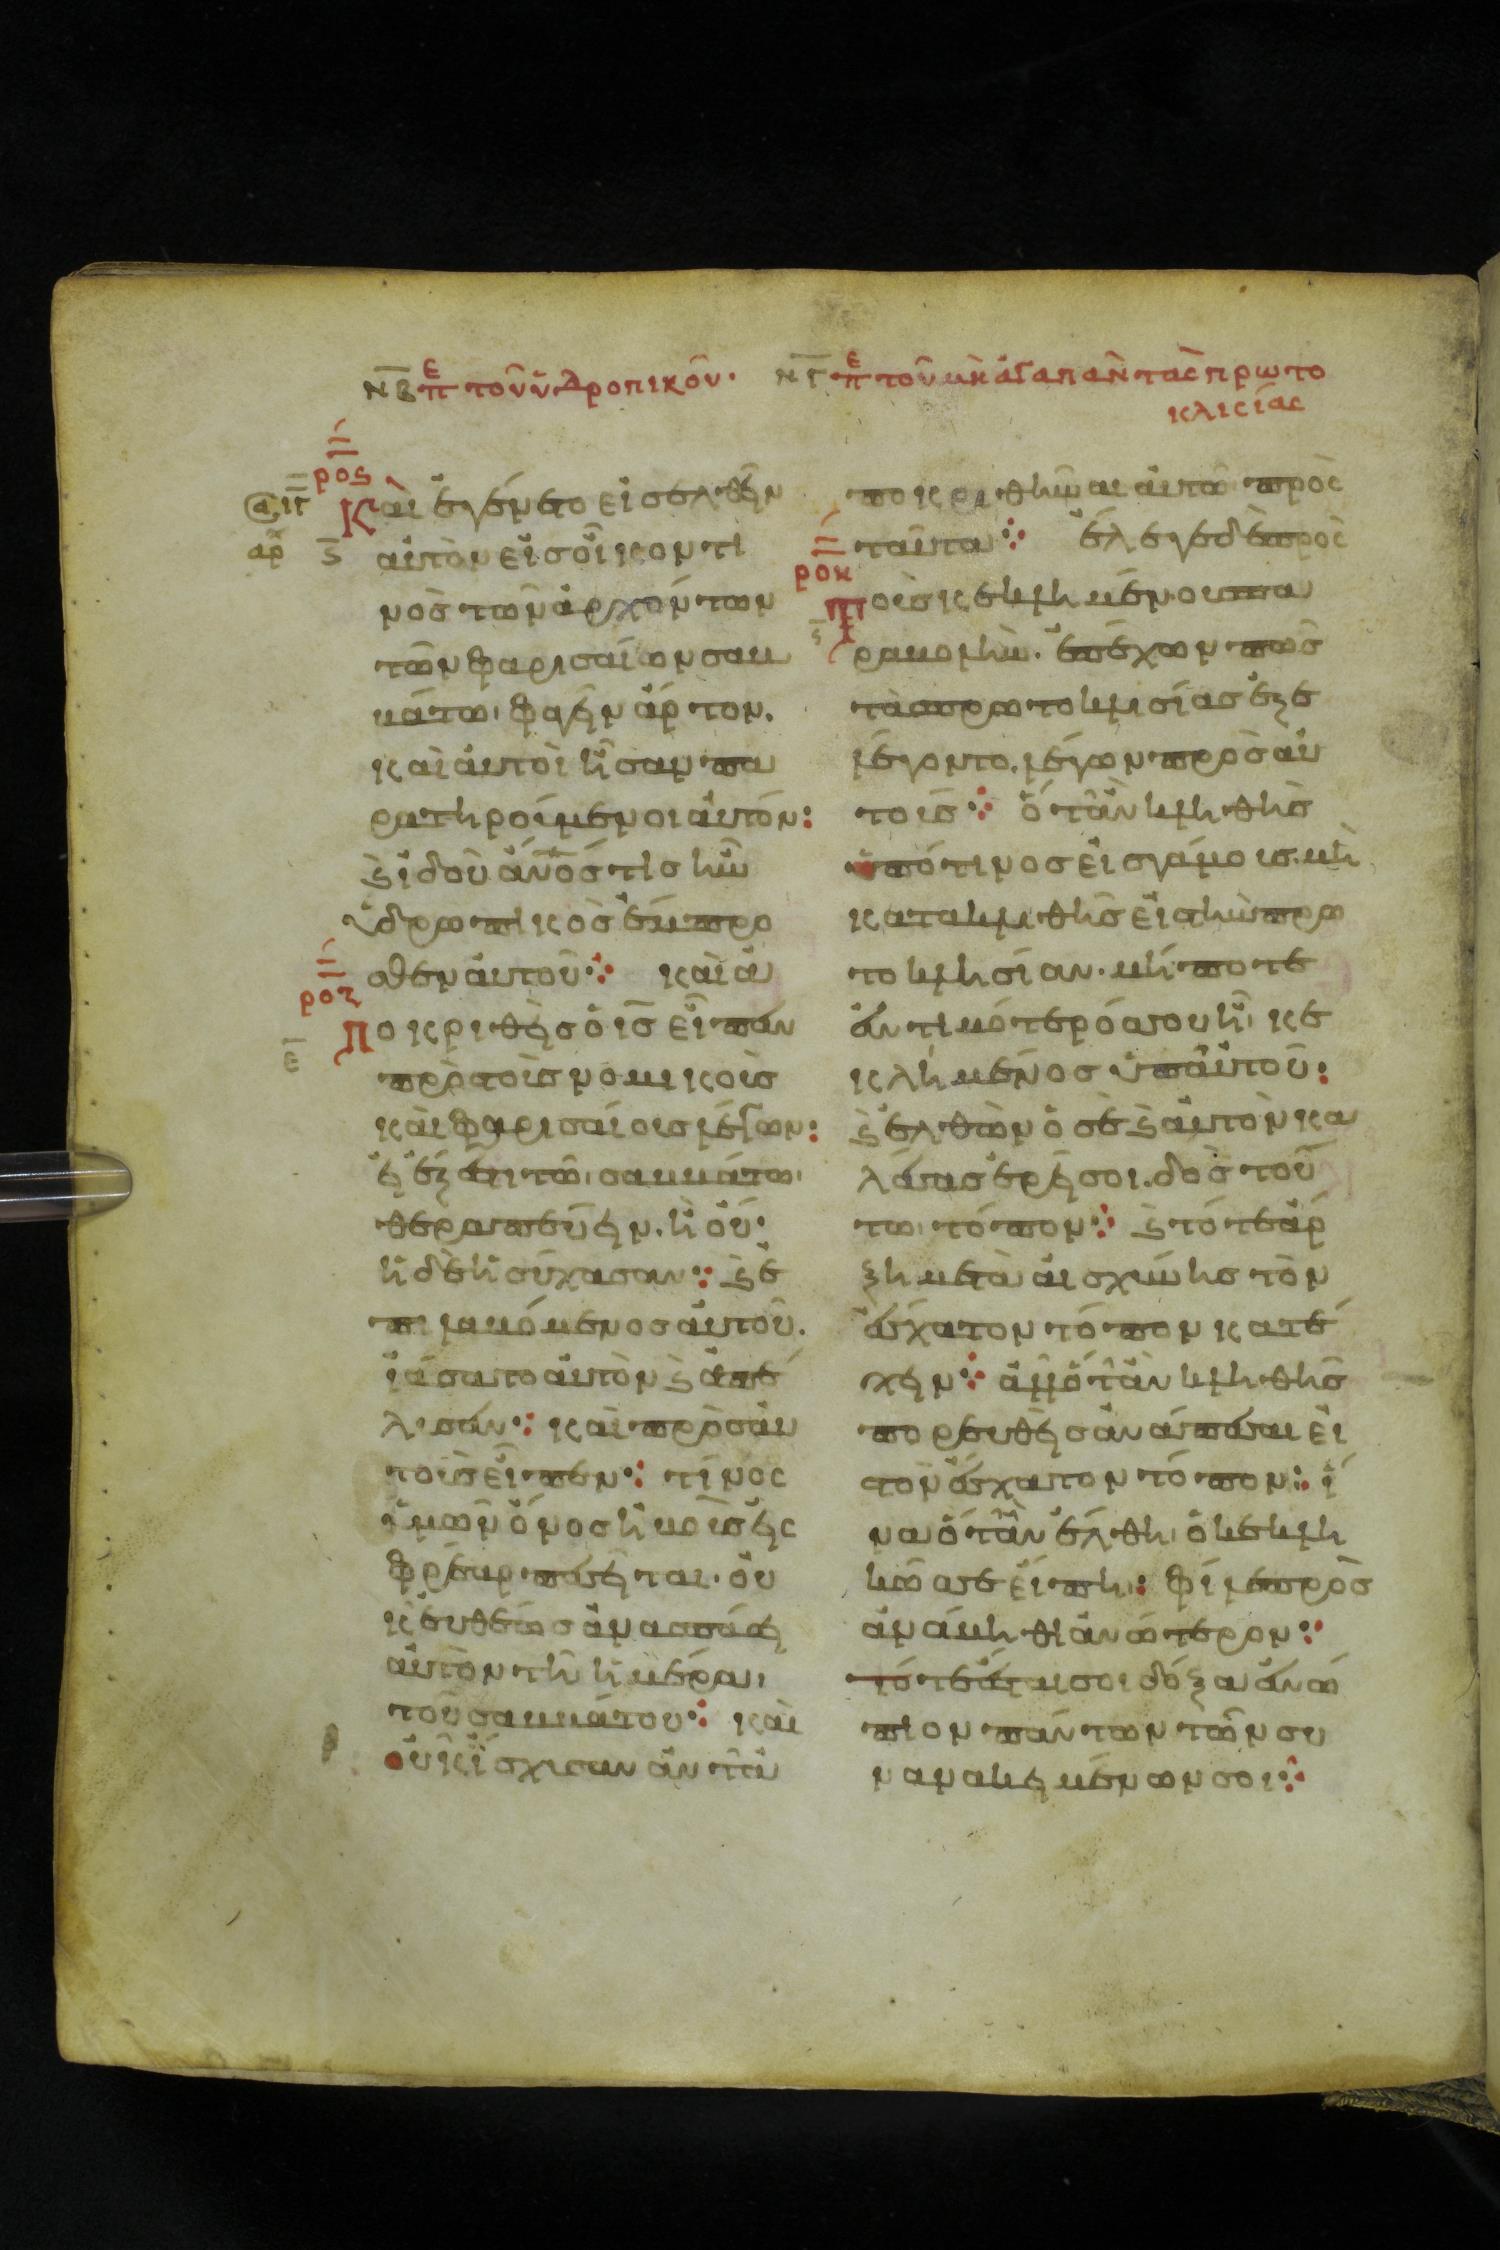 ν̅β̅ πε τοῦ ὑδροπικοῦ·
ν̅γ̅ πε τοῦ μὴ ἀγαπᾶν τὰς πρωτο
κλισίας
ρος
ιγ̅
αρχ
ς̅
Καὶ ἐγένετο εἰσελθεῖν
αὐτὸν εἰς οἶκον τι
νὸς τῶν ἀρχόντων
τῶν φαρισαίων σαβ
βάτω· φαγεῖν ἄρτον.
καὶ αὐτοὶ ἦσαν πα
ρατηρούμενοι αὐτόν:
ϗ ἰδοὺ ἄν̅ο̅ς τὶς ἦν
ὑδρωπικὸς ἔμπρο
σθεν αὐτοῦ⁘ καὶ ἀ
ροζ
ε̅
ποκριθεὶς ὁ ι̅ς̅ εἶπεν
πρὸς τοὺς νομικοὺς
καὶ φαρισαίους λέγων:
εἰ ἔξεστι τῶ σαββάτω·
θεραπεύειν. ἢ οὔ:
ἡ δὲ ἡσύχασαν⁘ ϗ ἐ
πιλαβόμενος αὐτοῦ.
ἰάσατο αὐτὸν ϗ ἀπέ
λυσεν⁘ καὶ πρὸς αὐ
τοὺς εἶπεν⁘ τίνος
ὑμῶν ὄνος ἢ βοῦς εἰς
φρέαρ πεσεῖται· οὐ
κ εὐθέως ἀνασπάσει
αὐτὸν τῆ ἡμέρα·
τοῦ σαββάτου⁘ καὶ
οὐκ ἴσχυσαν ἀντα
ποκριθῆναι αὐτῶ πρὸς
ταῦτα⁘ ἔλεγε δὲ πρὸς
ροη
ς̅
τοὺς κεκλημένους πα
ραβολὴν. ἐπέχων πῶς
τὰς πρωτοκλισίας ἐξε
λέγοντο. λέγων πρὸς αὐ
τοὺς⁘ ὅταν κληθῆς
ὑπό τινος εἰς γάμους. μὴ
κατακληθῆς εἰς τὴν πρω
τοκλησίαν. μήποτε
ἐντιμότερός σου ἦ κε
κλημένος ὑπ αὐτοῦ:
ϗ ἐλθὼν ὁ σὲ ϗ αὐτὸν κα
λέσας ἐρεῖ σοι. δὸς τού
τω τόπον⁘ ϗ τότε ἄρ
ξη μετὰ αἰσχύνης τὸν
ἔσχατον τόπον κατέ
χειν⁘ ἀλλ ὅταν κληθῆς
πορευθεὶς ἀνάπεσαι εἰς
τὸν ἔσχατον τόπον⁘ ἵ
να ὅταν ἔλθη ὁ κεκλη
κώς σε εἴπη⁘ φίλε πρὸς
ανάβηθι ἀνώτερον⁘
τότε ἔσται σοι δόξα ἐνώ
πιον πάντων τῶν συ
νανακειμένων σοι⁘